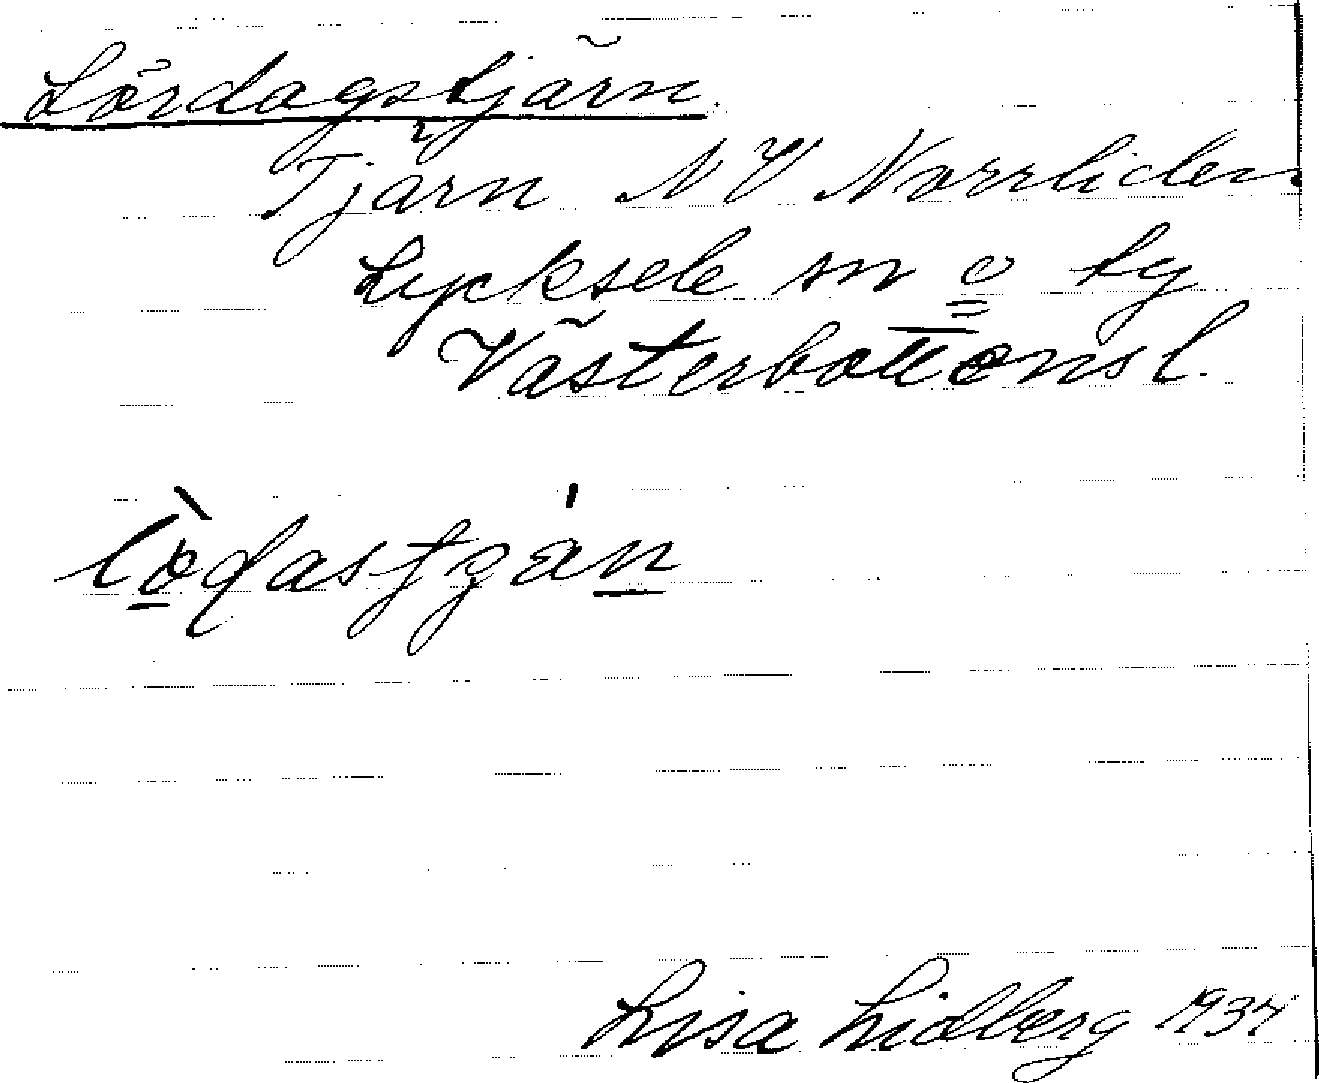 Lördagstjärn.
Tjärn NV Norrliden
Lycksele sn o. ty
Västerbottens l.
Lisa Lidberg 1934